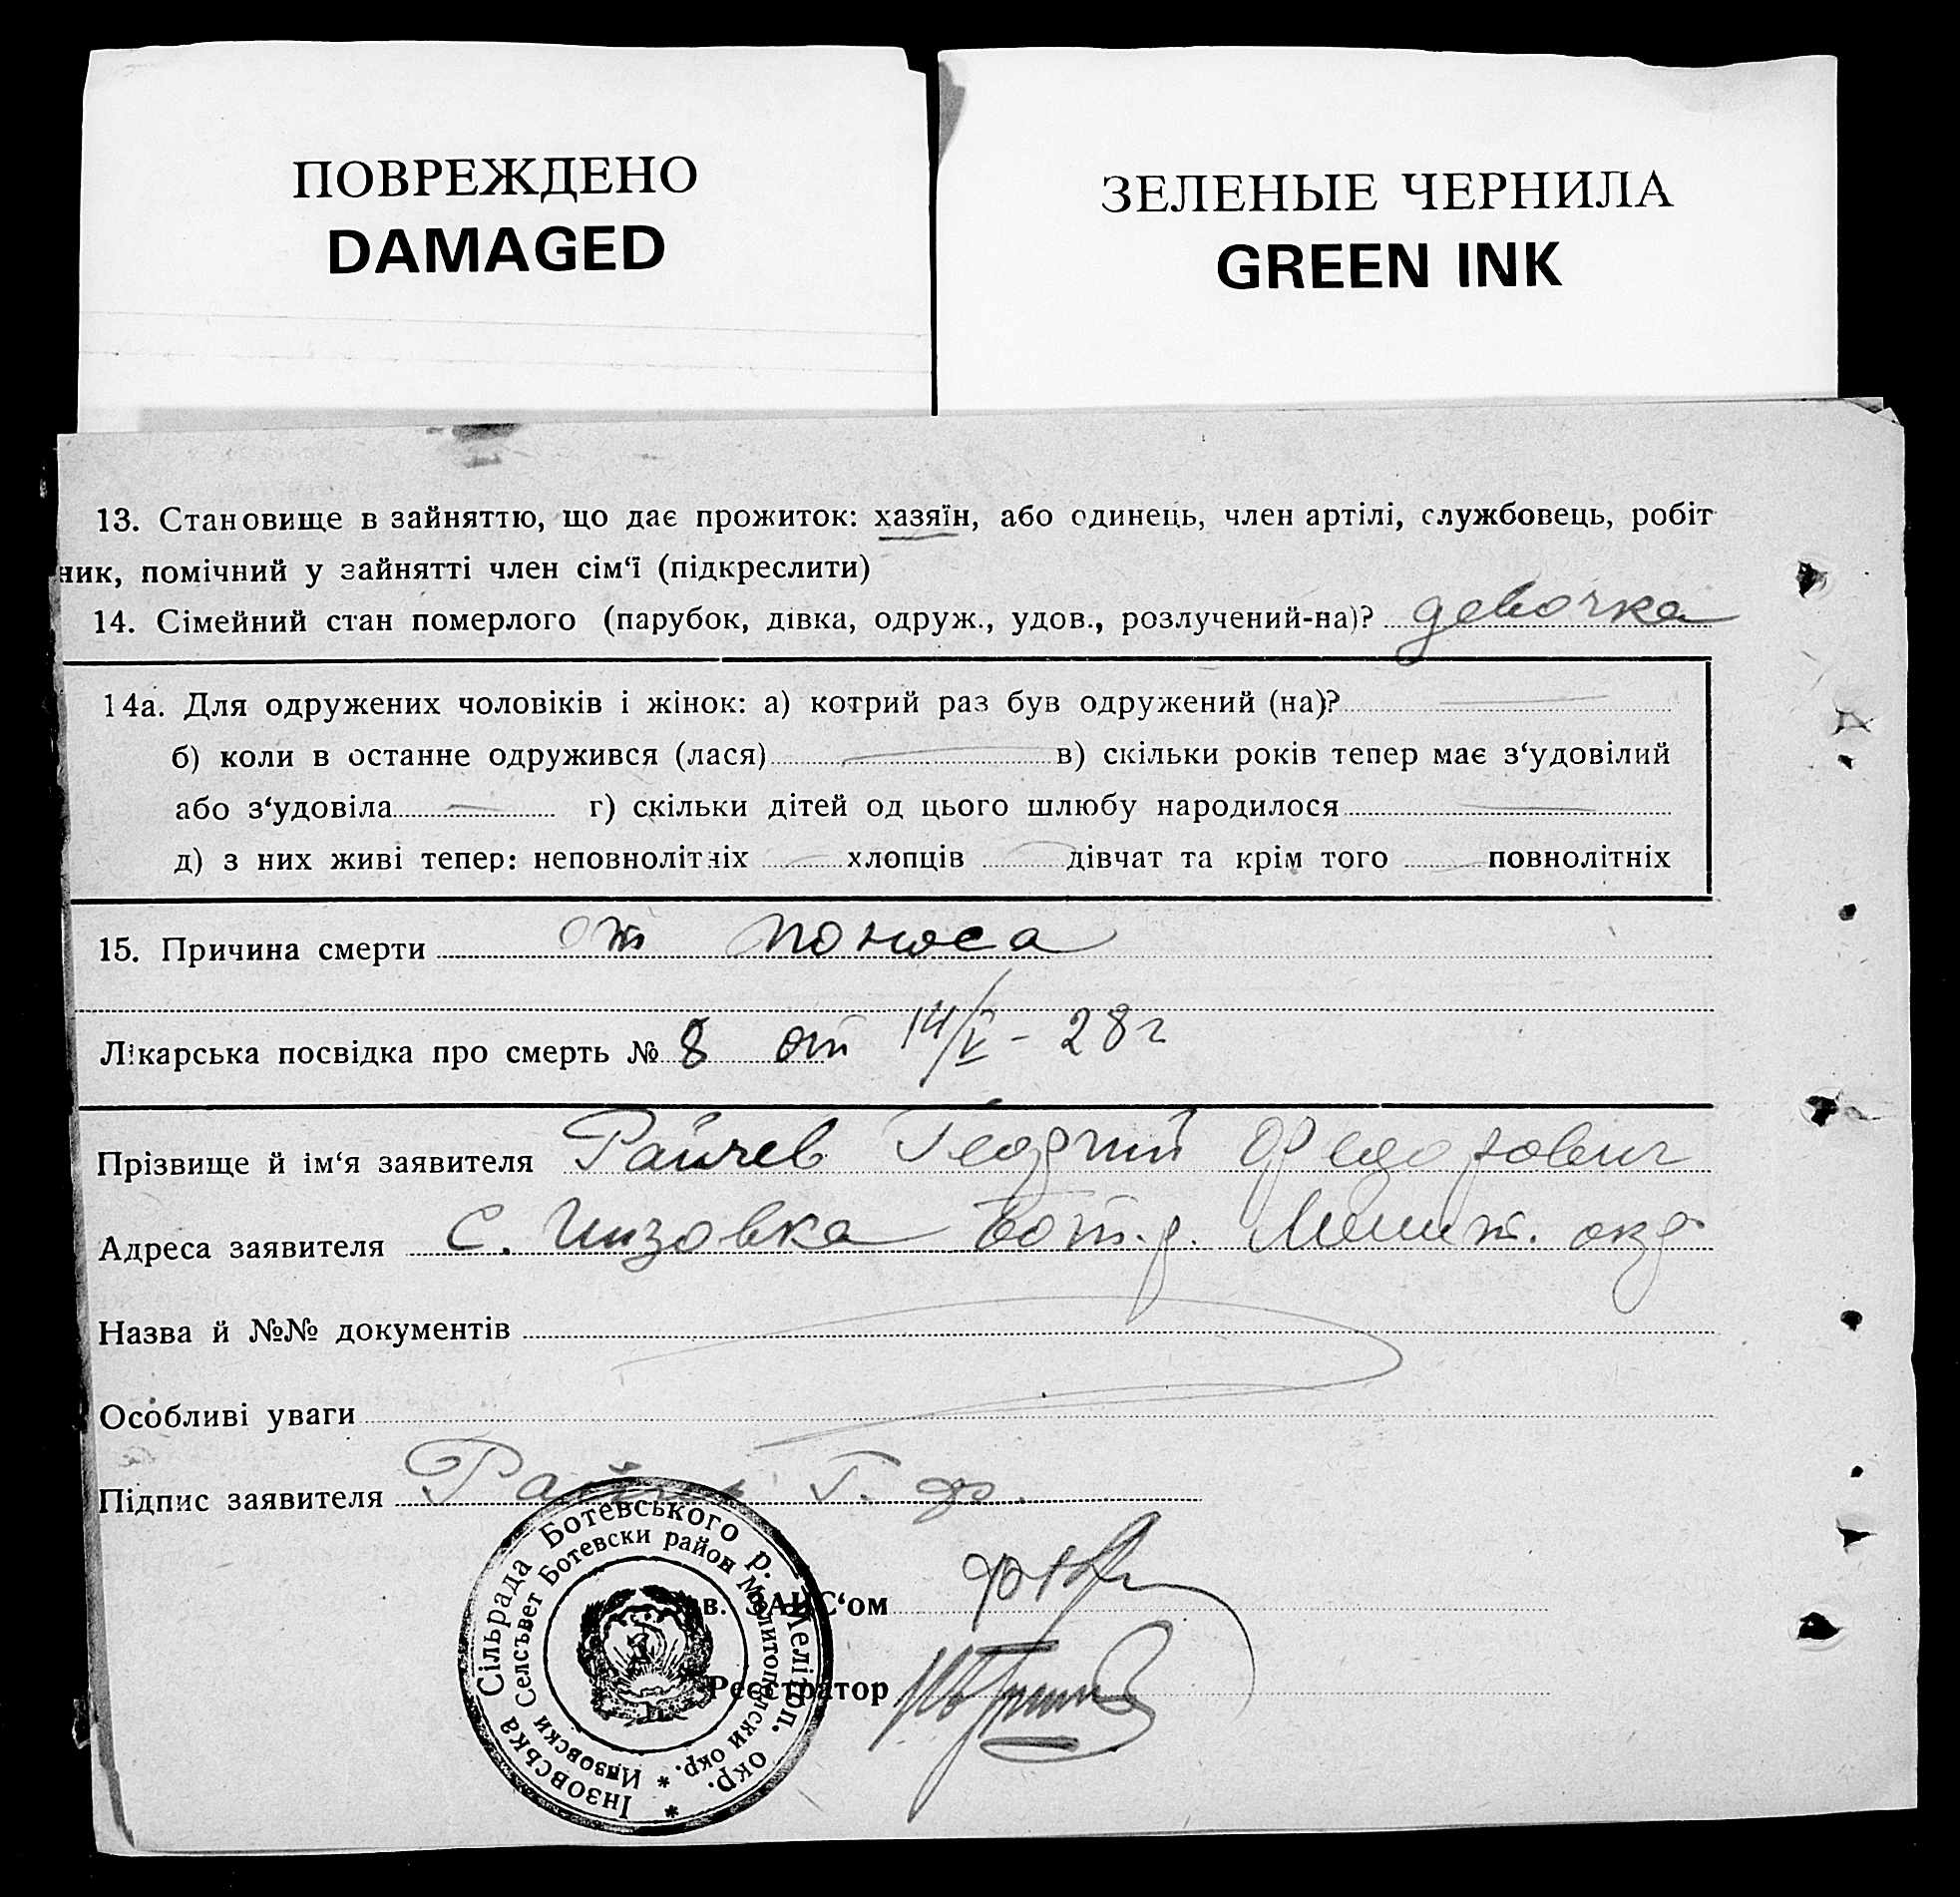 ПОВРЕЖДЕНО
DAMAGED
ЗЕЛЕНЫЕ ЧЕРНИЛА
GREEN INK
13. Становище в зайняттю, що дає прожиток: хазяїн, або одинець, член артілі, службовець, робіт
ник, помічний у зайнятті член сім‘ї (підкреслити)
14. Сімейний стан померлого (парубок, дівка, одруж., удов., розлучений-на)? девочка
14а. Для одружених чоловіків і жінок: а) котрий раз був одружений (на)?
б) коли в останне одружився (лася) в) скільки років тепер має з‘удовілий
або з‘удовіла г) скільки дітей од цього шлюбу народилося
д) з них живі тепер: неповнолітніх хлопців дівчат та крім того повнолітніх
15. Причина смерти от поноса
Лікарська посвідка про смерть № 8 от 14/V - 28 г
Прізвище й ім‘я заявителя Райчев Георгий Федорович
Адреса заявителя С. Инзовка Бот. р. Мелит. окр
Назва й №№ документів
Особливі уваги
Підпис заявителя Райчев Г. Ф.
Зав. ЗАГС‘ом
Реєстратор
Інзовська Сільрада Ботевського р. Меліtоп. окр. *
Инзовски Селсъвет Ботевски район Мелитополски окр. *